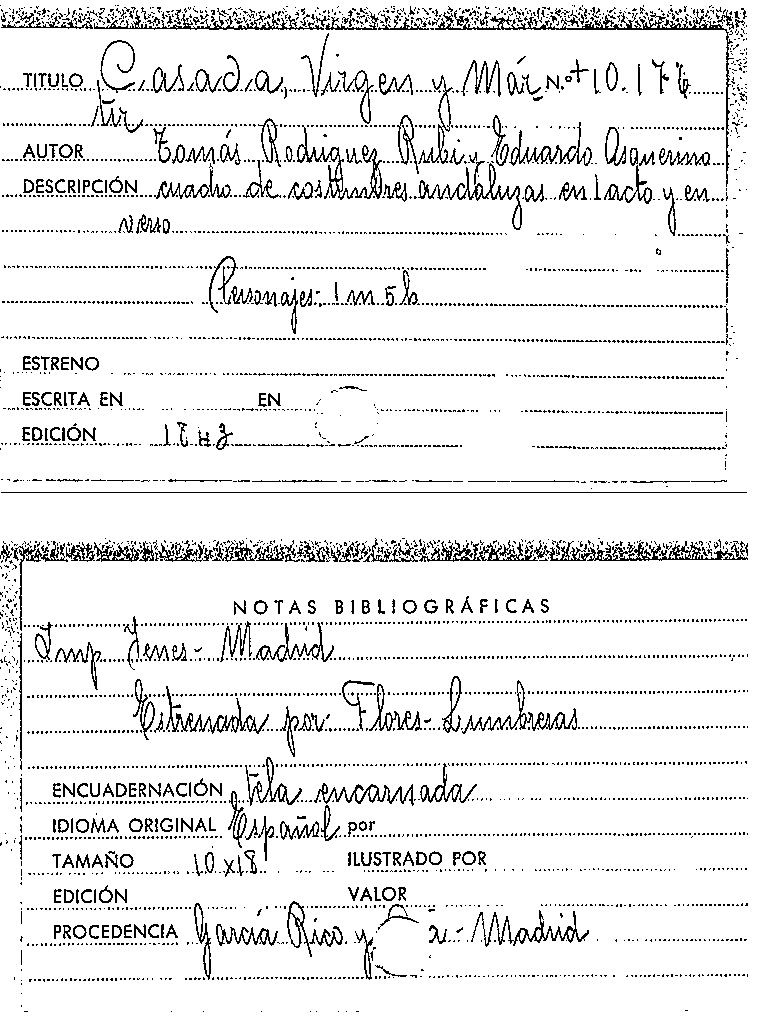 TITULO Casada, Virgen y Már N.º + 10.176
tir
AUTOR Tomás Rodriguez Rubi y Eduardo Asquerino
DESCRIPCIÓN cuadro de costumbres andaluzas en 1 acto y en
verso
Personajes: 1 m 5 h
ESTRENO
ESCRITA EN EN
EDICIÓN 1843
NOTAS BIBLIOGRÁFICAS
Imp Yenes - Madrid
Estrenada por: Flores - Lumbreras
ENCUADERNACIÓN tela encarnada
IDIOMA ORIGINAL Español por
TAMAÑO 10 x 18 ILUSTRADO POR
EDICIÓN VALOR
PROCEDENCIA García Rico y - Madrid